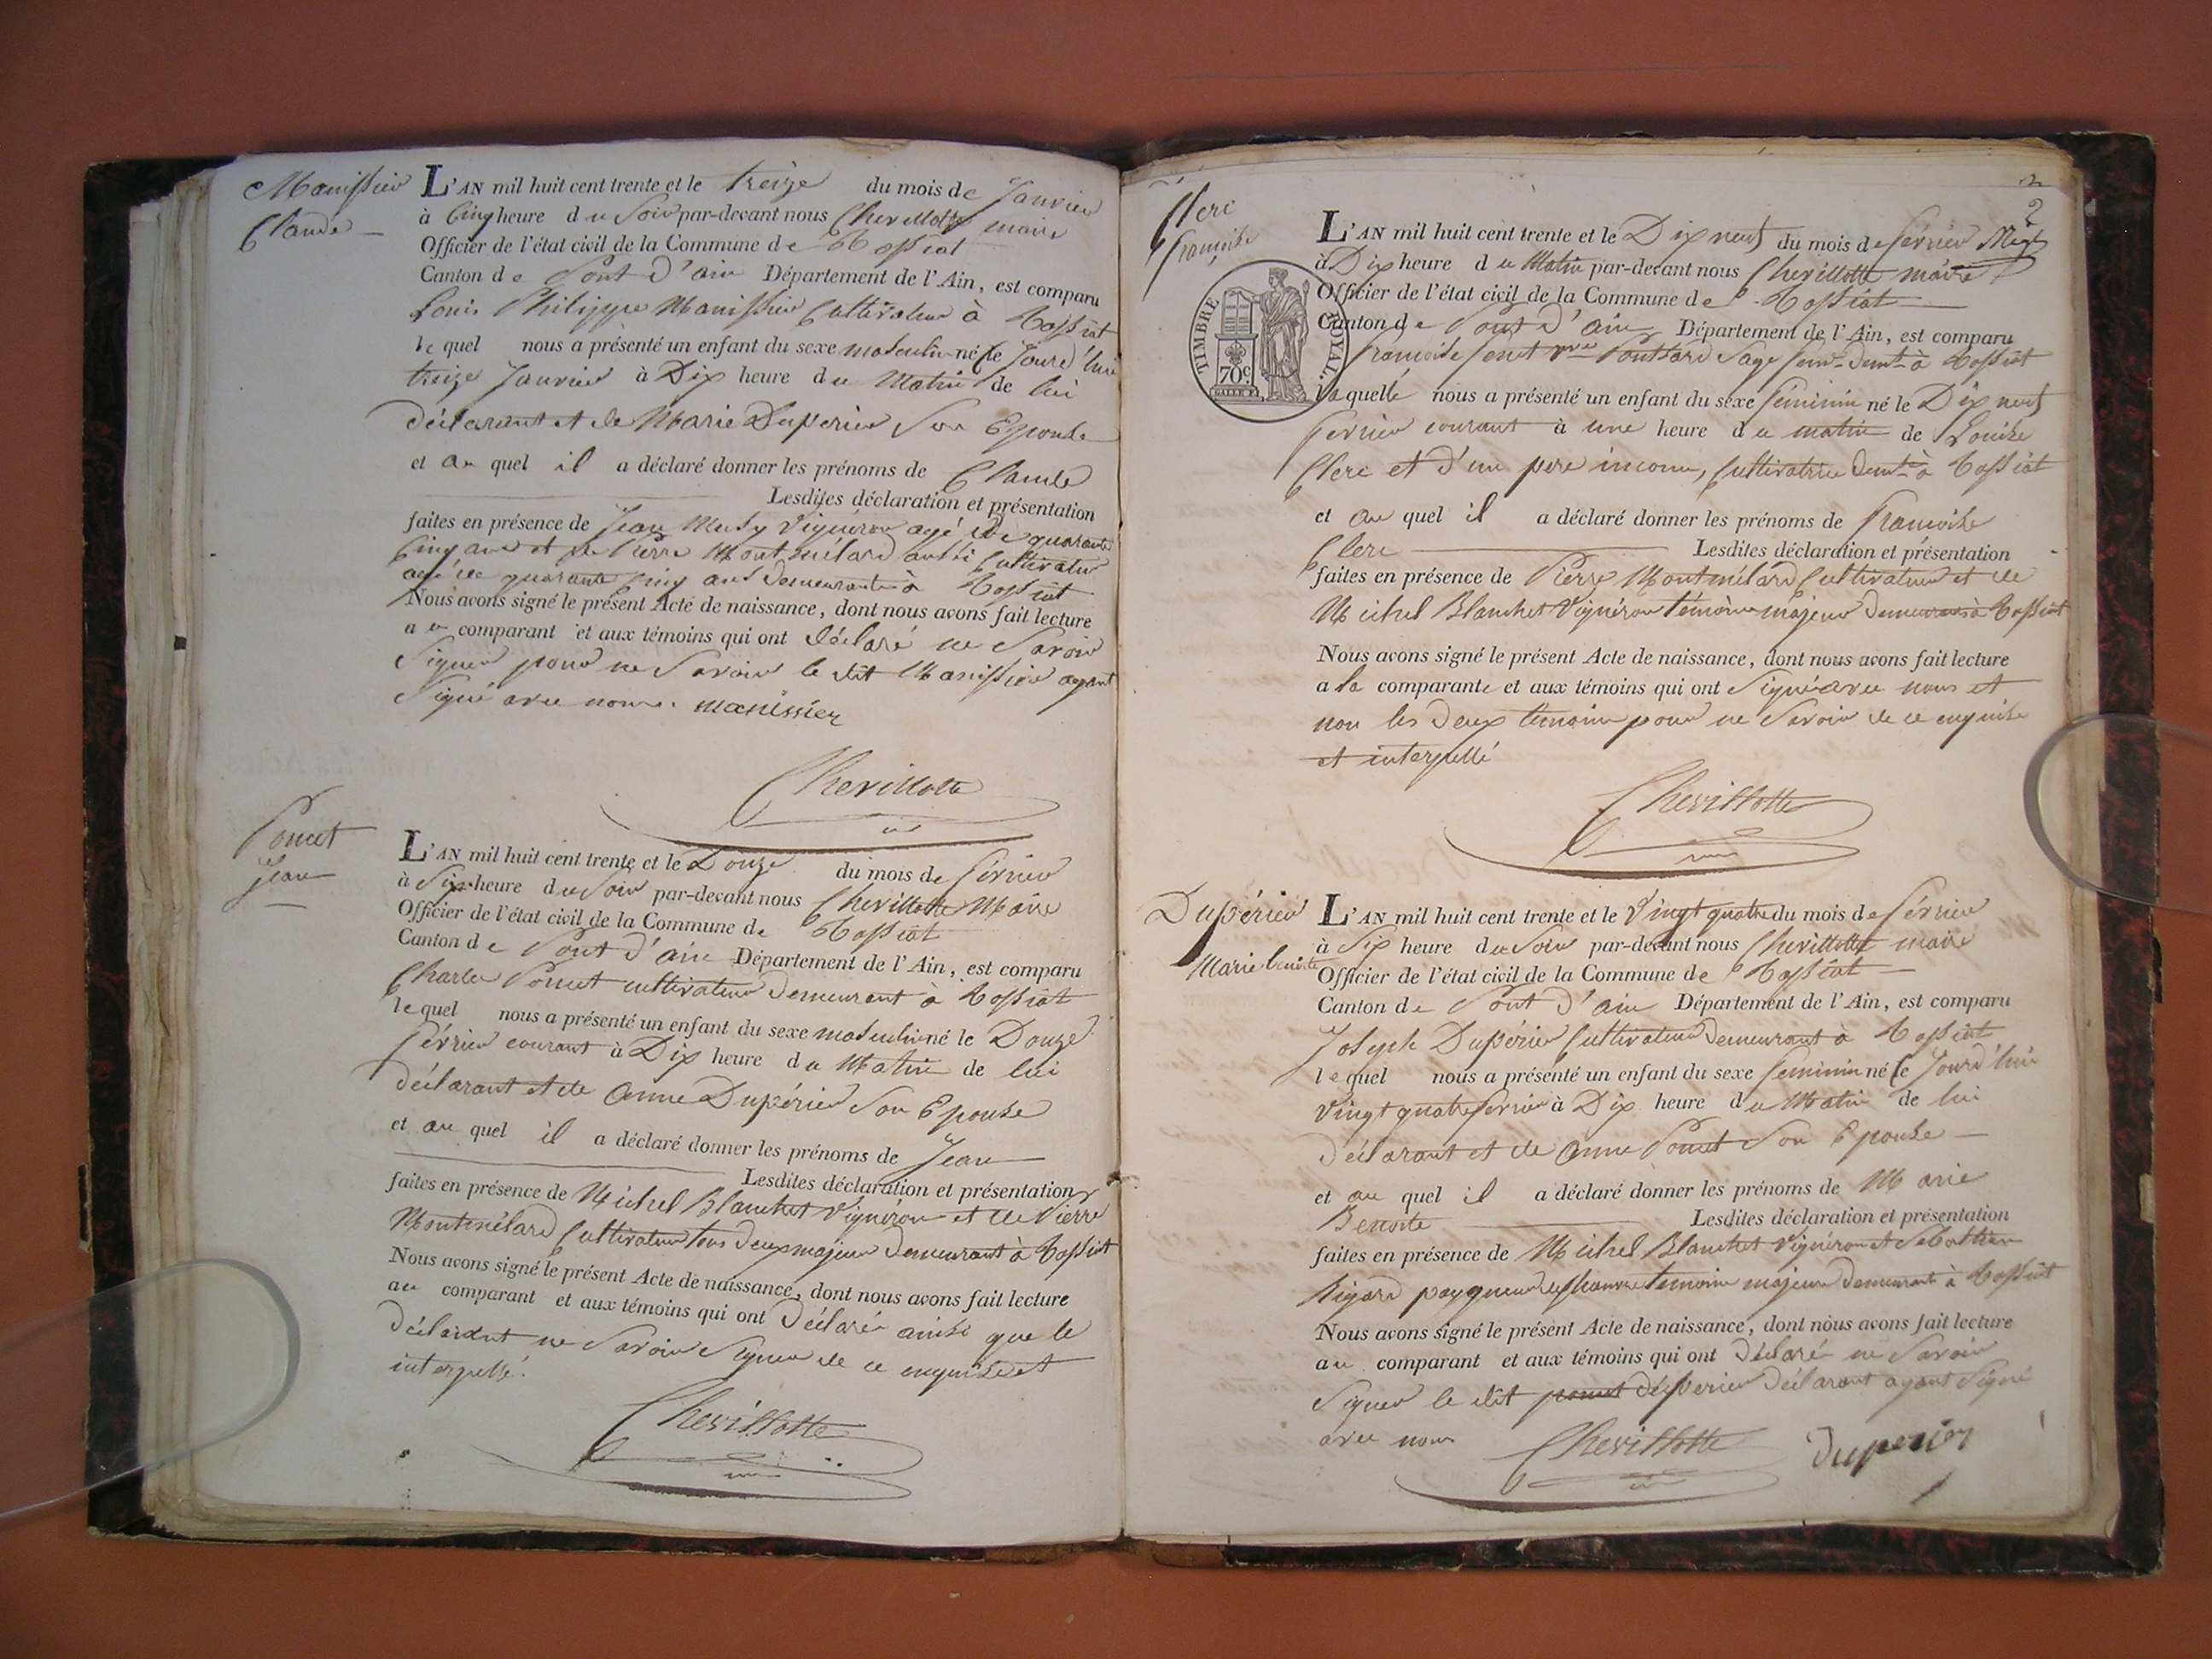 Manissier
Claude
L'AN mil huit cent trente et le treize du mois de Janvier
à Cinq heure du Soir par-devant nous Chevillotte maire
Officier de l'état civil de la Commune de Tossiat
Canton de Pont d'ain Département de l'Ain, est comparu
Louis Philippe Manissier Cultivateur à Tossiat
lequel nous a présenté un enfant du sexe masculin né le Jourd'hui
treize Janvier à Dix heure du Matin de lui
déclarant et de Marie Duperier Son Epouse
et au quel il a déclaré donner les prénoms de Claude
Lesdites déclaration et présentation
faites en présence de Jean Musy Vigneron agé de quarante
Cinq ans et de Pierre Montmélard aussi Cultivateur
agé de quarante Cinq ans demeurants à Tossiat
Nous avons signé le présent Acte de naissance, dont nous avons fait lecture
au comparant et aux témoins qui ont déclaré ne Savoir
Signer pour ne Savoir le dit Manissier ayant
Signé avec nous. manissier
Chevillotte
Poncet
Jean
L'AN mil huit cent trente et le Douze du mois de février
à Six heure du Soir par-devant nous Chevillotte Maire
Officier de l'état civil de la Commune de Tossiat
Canton de Pont d'ain Département de l'Ain, est comparu
Charles Poncet cultivateur demeurant à Tossiat
lequel nous a présenté un enfant du sexe masculin né le Douze
février courant à Dix heure du Matin de lui
déclarant et de Anne Dupérier Son Epouse
et au quel il a déclaré donner les prénoms de Jean
Lesdites déclaration et présentation
faites en présence de Michel Blanchet Vigneron et de Pierre
Montmélard Cultivateur tous deux majeur demeurant à Tossiat
Nous avons signé le présent Acte de naissance, dont nous avons fait lecture
au comparant et aux témoins qui ont Déclaré ainsi que le
déclarant ne Savoir Signer de ce enquise et
interpellé.
Chevillotte
2
Clerc
françoise
TIMBRE ROYAL.
70c
L'AN mil huit cent trente et le Dix neuf du mois de février
à Dix heure du Matin par-devant nous Chevillotte maire
Officier de l'état civil de la Commune de Tossiat
Canton de Pont d'ain Département de l'Ain, est comparu
francoise vve Pontsard Sage fem demt à Tossiat
laquelle nous a présenté un enfant du sexe féminin né le Dix neuf
fevrier courant à une heure du matin de Louise
Clerc et d'un pere inconnu, Cultivatrice demte à Tossiat
et au quel il a déclaré donner les prénoms de francoise
Clerc Lesdites déclaration et présentation
faites en présence de Pierre Montmélard Cultivateur et de
Michel Blanchet Vigneron témoins majeur demeurans à Tossiat
Nous avons signé le présent Acte de naissance, dont nous avons fait lecture
a la comparante et aux témoins qui ont Signé avec nous et
non les deux témoins pour ne Savoir de ce enquise
et interpellé
Chevillotte
Dupérier
Marie benoite
L'AN mil huit cent trente et le Vingt quatre du mois de février
à Six heure du Soir par-devant nous Chevillotte maire
Officier de l'état civil de la Commune de Tossiat
Canton de Pont d'ain Département de l'Ain, est comparu
Joseph Dupérier Cultivateur demeurant à Tossiat
lequel nous a présenté un enfant du sexe féminin né le Jourd'hui
Vingt quatre fevrier à Dix heure du Matin de lui
Déclarant et de Anne Poncet Son Epouse
et au quel il a déclaré donner les prénoms de Marie
Benoite Lesdites déclaration et présentation
faites en présence de Michel Blanchet Vigneron et Sebastien
Rigard chanvre temoins majeur demeurant à Tossiat
Nous avons signé le présent Acte de naissance, dont nous avons fait lecture
au comparant et aux témoins qui ont Déclaré ne Savoir
Signer le dit poncet duperier Déclarant ayant Signé
avec nous Chevillotte duperier